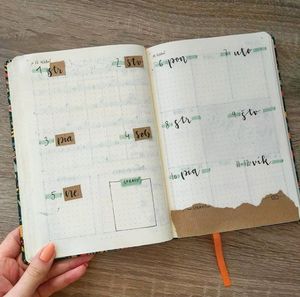 1 str
2 štv
3 pia
4 sob
5 ne
6 pon
7 uto
8 str
9 štv
10 pia
11-12 vik